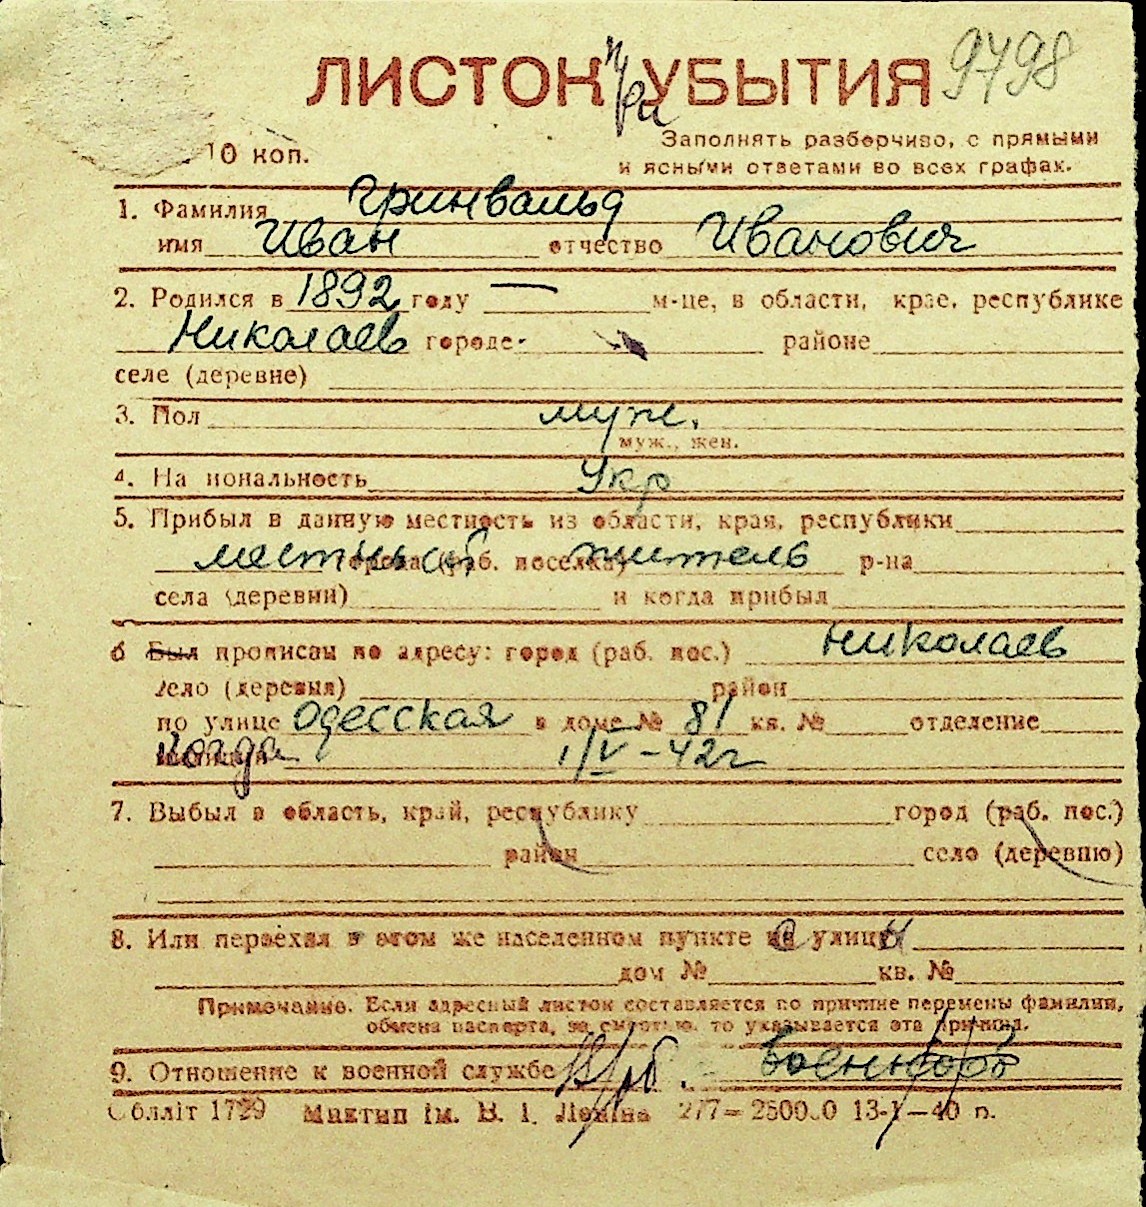 ЛИСТОК при УБЫТИЯ 9798
10 коп.
Заполнять разборчиво, с прямыми
и ясными ответами во всех графах.
1. Фамилия Гринвальд
имя Иван отчество Иванович
2. Родился в 1892 году — м-це, в области, крае, республике
Николаев городе районе
селе (деревне)
3. Пол муж.
муж., жен.
4. На иональность Укр
5. Прибыл в данную местность из области, края, республики
местный города (раб. поселка) житель р-на
села (деревни) и когда прибыл
6 Был прописан по адресу: город (раб. пос.) Николаев
село (деревня) район
по улице Одесская в доме № 81 кв. № отделение
Когда 1/V-42г
7. Выбыл в область, край, республику город (раб. пос.)
район село (деревню)
8. Или переехал в этом же населенном пункте с улицы
дом № кв. №
Примечание. Если адресный листок составляется по причине перемены фамилии,
обмена паспорта, за смертью, то указывается эта причина.
9. Отношение к военной службе
Облліт 1729 Миктип ім. В. І. Леніна 277— 25000 0 13-I—40 п.